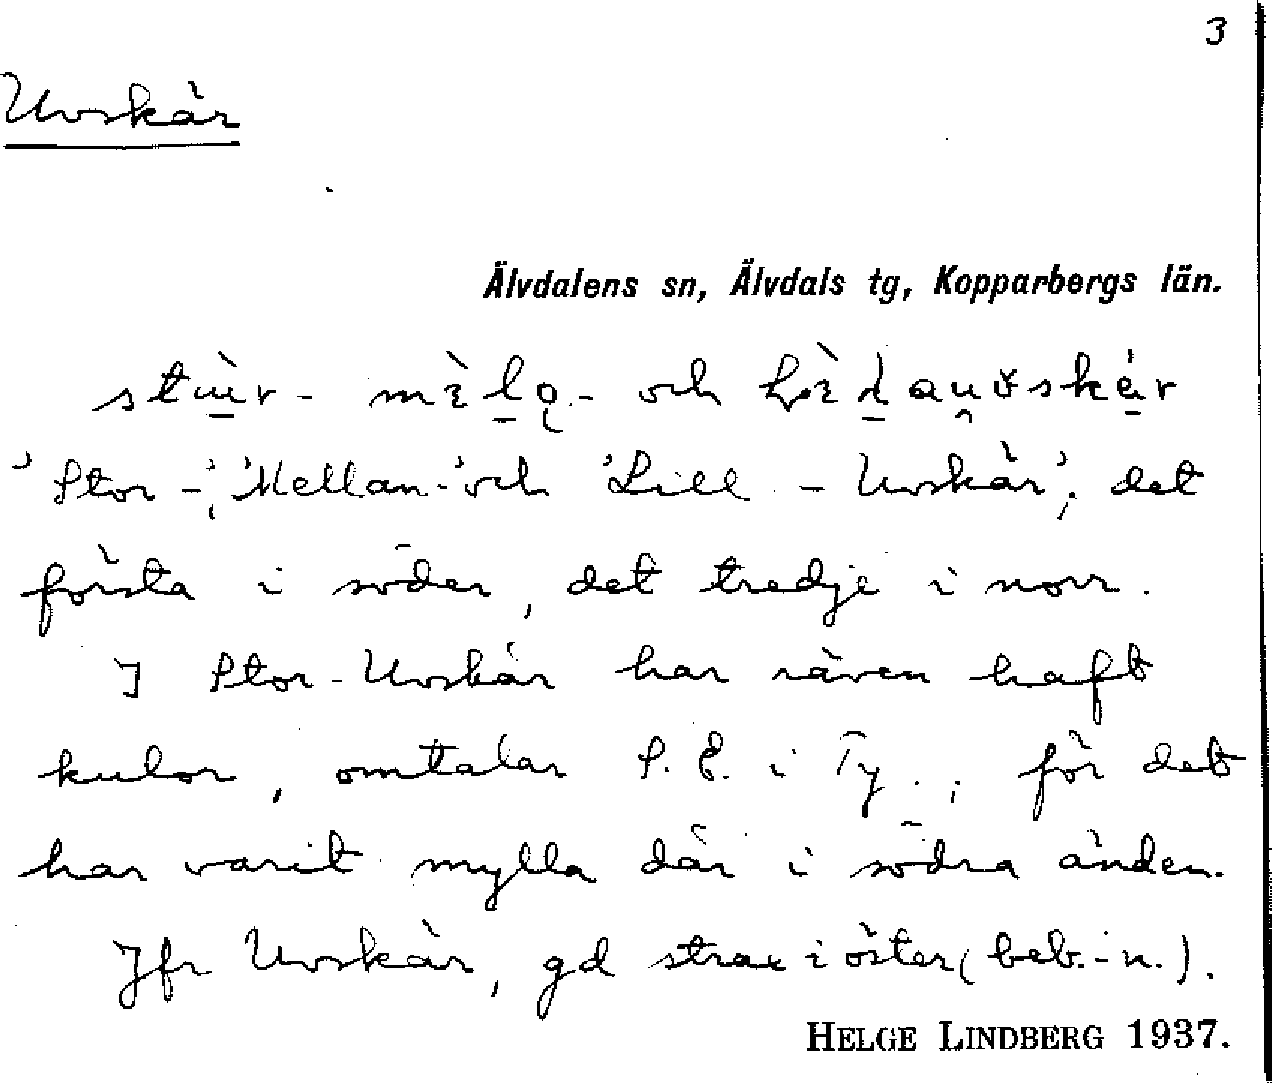 3
Uvskär
Älvdalens sn, Älvdals tg, Kopparbergs län.
och
'Stor-', 'Mellan-' och 'Lill-Uvskär'; det
första i söder, det tredje i norr.
I Stor-Uvskär har räven haft
kulor, omtalar S. E. i Ty.; för det
har varit mylla där i södra änden.
Jfr Uvskär, gd strax i öster (beb.-n.).
HELGE LINDBERG 1937.